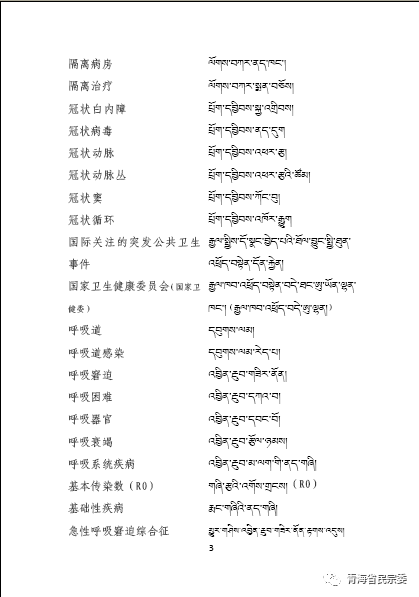 隔离病房 ལོགས་བཀར་ནད་ཁང་།
隔离治疗 ལོགས་བཀར་སྨན་བཅོས།
冠状白内障 པྲོག་དབྱིབས་སྐྱ་འགྲིབས།
冠状病毒 པྲོག་དབྱིབས་ནད་དུག
冠状动脉 པྲོག་དབྱིབས་འཕར་རྩ།
冠状动脉丛 པྲོག་དབྱིབས་འཕར་རྩའི་ཚོམ།
冠状窦 པྲོག་དབྱིབས་ཀོང་བུ།
冠状循环 པྲོག་དབྱིབས་འཁོར་རྒྱུག
国际关注的突发公共卫生 རྒྱལ་སྤྱིས་དོ་སྣང་བྱེད་པའི་ཐོལ་བྱུང་སྤྱི་ཐུན་
事件 འཕྲོད་བསྟེན་དོན་རྐྱེན།
国家卫生健康委员会(国家卫 རྒྱལ་ཁབ་འཕྲོད་བསྟེན་བདེ་ཐང་ཨུ་ཡོན་ལྷན་
健委) ཁང་། (རྒྱལ་ཁབ་འཕྲོད་བདེ་ཨུ་ལྷན།)
呼吸道 དབུགས་ལམ།
呼吸道感染 དབུགས་ལམ་རེད་པ།
呼吸窘迫 འབྱིན་རྔུབ་གཟིར་ནོན།
呼吸困难 འབྱིན་རྔུབ་དཀའ་བ།
呼吸器官 འབྱིན་རྔུབ་དབང་པོ།
呼吸衰竭 འབྱིན་རྔུབ་རྩོལ་ཉམས།
呼吸系统疾病 འབྱིན་རྔུབ་མ་ལག་གི་ནད་གཞི།
基本传染数（R0） གཞི་རྩའི་འགོས་གྲངས།（R0）
基础性疾病 རྨང་གཞིའི་ནད་གཞི།
急性呼吸窘迫综合征 མྱུར་གཤིས་འབྱིན་རྔུབ་གཟིར་ནོན་རྟགས་འདུས།
3
青海省民宗委